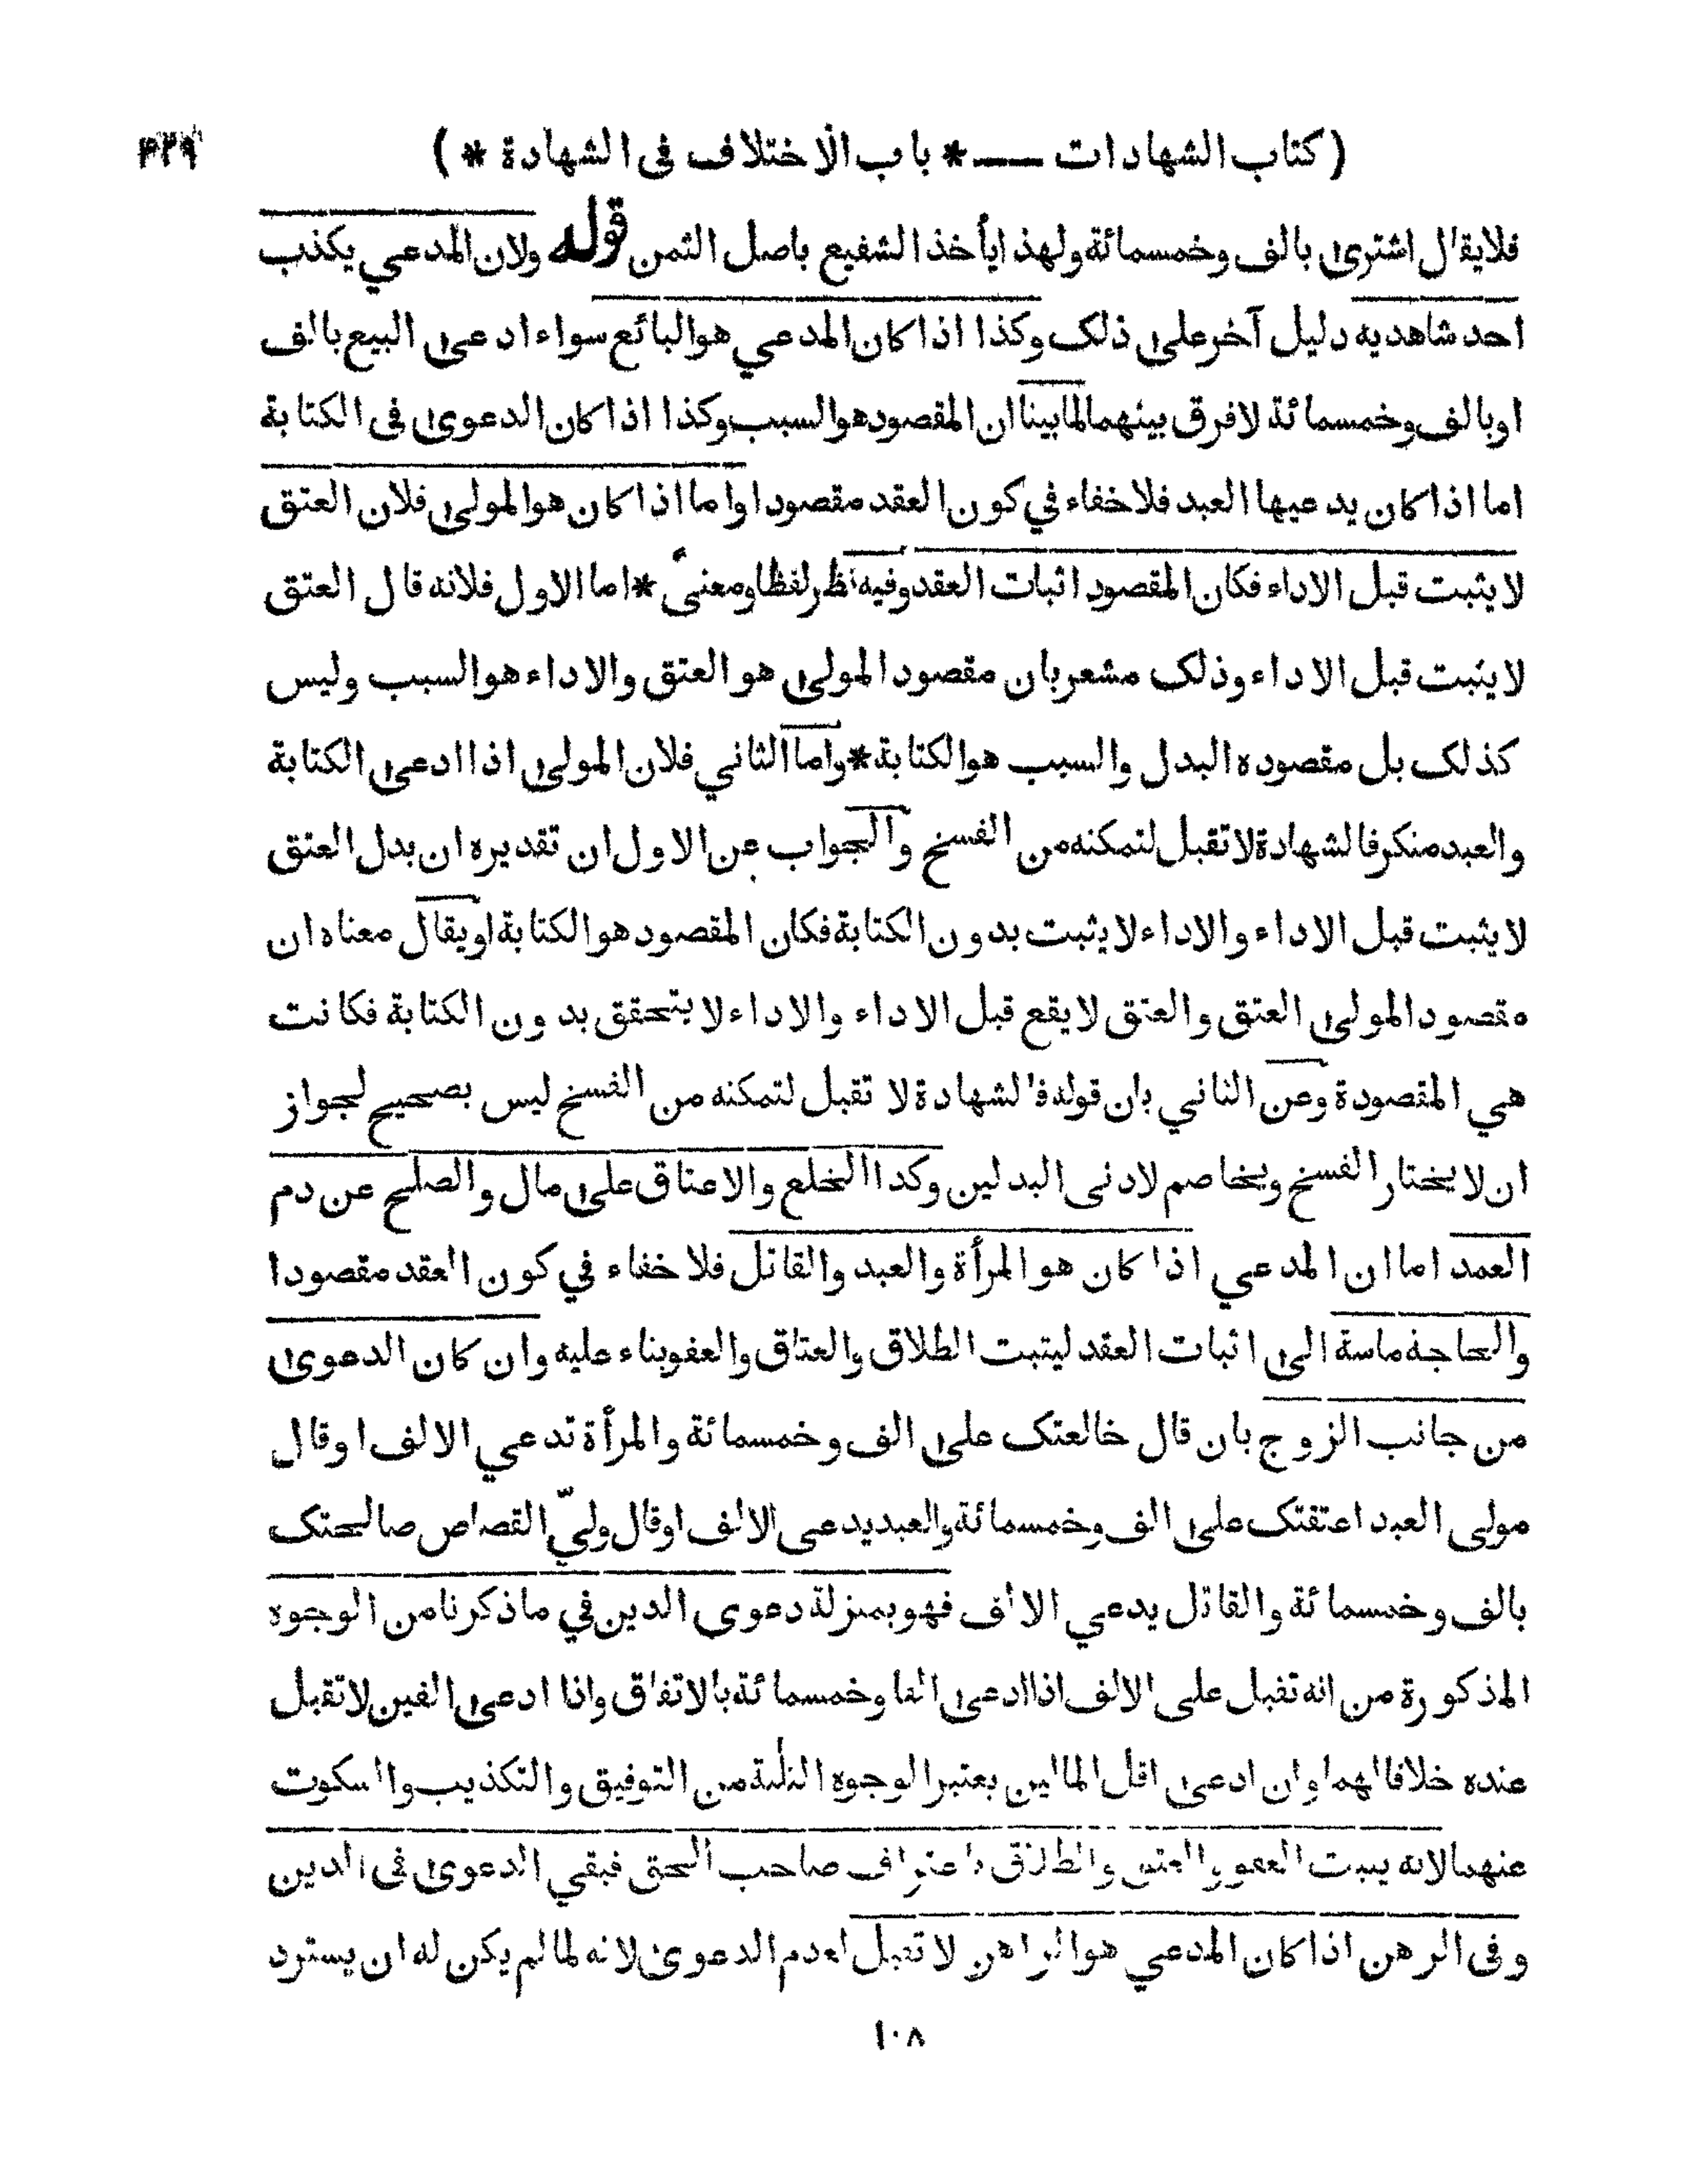 (كتاب الشهادات — * باب الاختلاف فى الشهادة *)
۴۲۹
فلايقال اشترى بالف وخمسمائة ولهذا يأخذ الشفيع باصل الثمن قوله ولان المدعي يكذب
احد شاهديه دليل آخر على ذلك وكذا اذا كان المدعي هو البائع سواء ادعى البيع بالف
او بالف وخمسمائة لا فرق بينهما لما بينا ان المقصود هو السبب وكذا اذا كان الدعوى فى الكتابة
اما اذا كان يدعيها العبد فلا خفاء في كون العقد مقصودا واما اذا كان هو المولى فلان العتق
لا يثبت قبل الاداء فكان المقصود اثبات العقد وفيه نظر لفظا ومعنىً * اما الاول فلانه قال العتق
لا يثبت قبل الاداء وذلك مشعر بان مقصود المولى هو العتق والاداء هو السبب وليس
كذلك بل مقصوده البدل والسبب هو الكتابة * واما الثاني فلان المولى اذا ادعى الكتابة
والعبد منكر فالشهادة لا تقبل لتمكنه من الفسخ والجواب عن الاول ان تقديره ان بدل العتق
لا يثبت قبل الاداء والاداء لا يثبت بدون الكتابة فكان المقصود هو الكتابة او يقال معناه ان
مقصود المولى العتق والعتق لا يقع قبل الاداء والاداء لا يتحقق بدون الكتابة فكانت
هي المقصودة وعن الثاني بان قوله فالشهادة لا تقبل لتمكنه من الفسخ ليس بصحيح لجواز
ان لا يختار الفسخ ويخاصم لادنى البدلين وكذا الخلع والاعتاق على مال والصلح عن دم
العمد اما ان المدعي اذا كان هو المرأة والعبد والقاتل فلا خفاء في كون العقد مقصودا
والحاجة ماسة الى اثبات العقد ليثبت الطلاق والعتاق والعفو بناء عليه وان كان الدعوى
من جانب الزوج بان قال خالعتك على الف وخمسمائة والمرأة تدعي الالف او قال
مولى العبد اعتقتك على الف وخمسمائة والعبد يدعى الالف او قال وليّ القصاص صالحتك
بالف وخمسمائة والقاتل يدعي الالف فهو بمنزلة دعوى الدين في ما ذكرنا من الوجوه
المذكورة من انه تقبل على الالف اذا ادعى الفا وخمسمائة بالاتفاق واذا ادعى الفين لا تقبل
عنده خلافا لهما وان ادعى اقل المالين يعتبر الوجوه الثلثة من التوفيق والتكذيب والسكوت
عنهما لانه يثبت العفو والعتق والطلاق باعتراف صاحب الحق فبقي الدعوى فى الدين
وفى الرهن اذا كان المدعي هو الراهن لا تقبل لعدم الدعوى لانه لما لم يكن له ان يسترد
۱۰۸